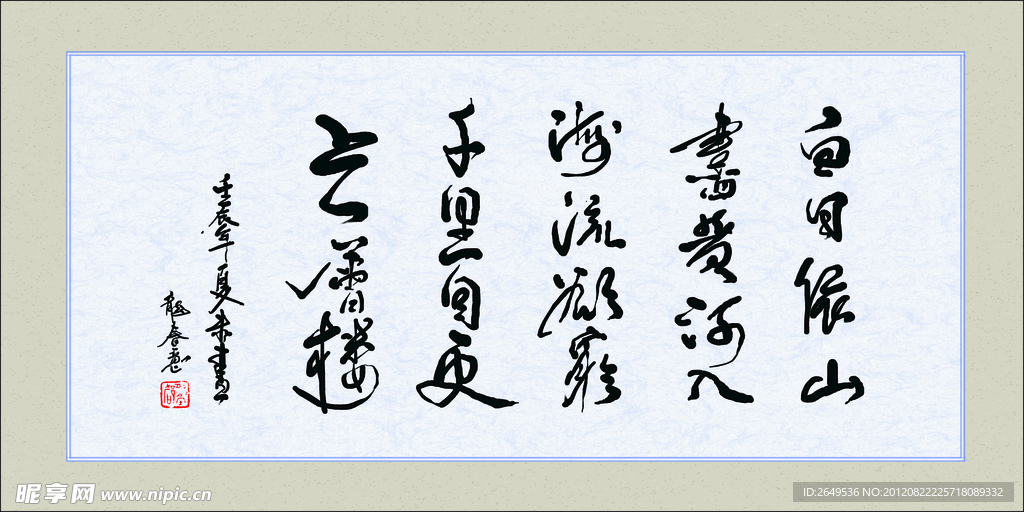 白日依山
盡黄河入
海流欲窮
千里目更
上一層樓
壬辰年夏末書
昵享网 www.nipic.cn
ID:2649536 NO:20120822225718089332